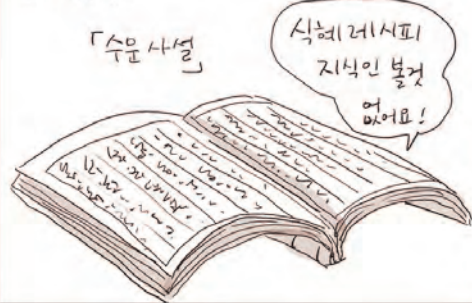 「수문사설」
식혜레시피
지식인 볼것
없어요!